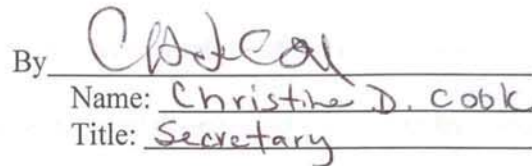 By
Name: Christine D. Cook
Title: Secretary